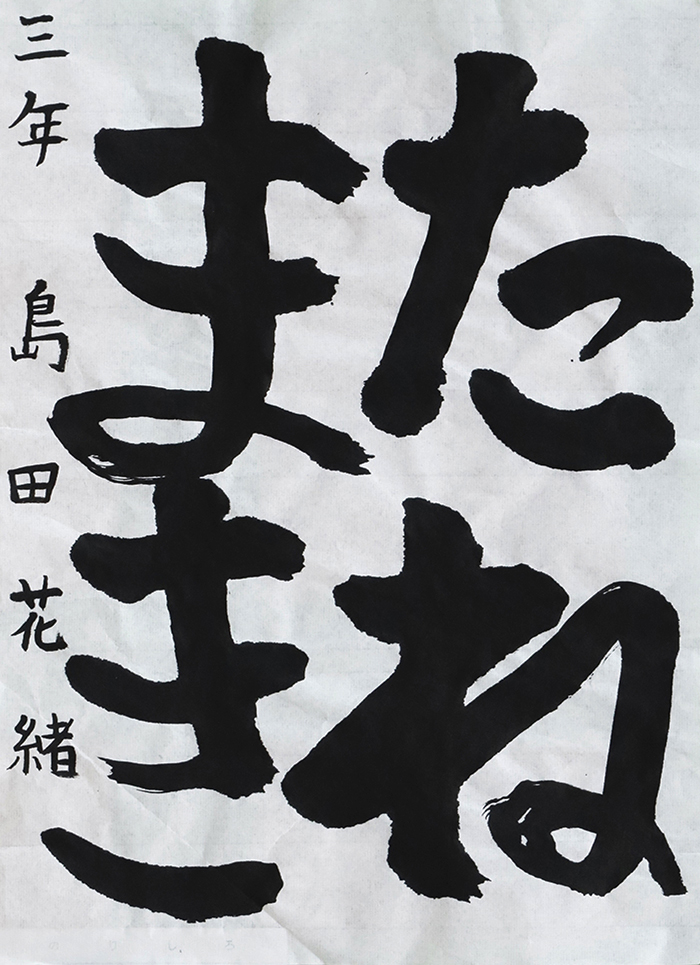 たね
まき
三年 島田花緒